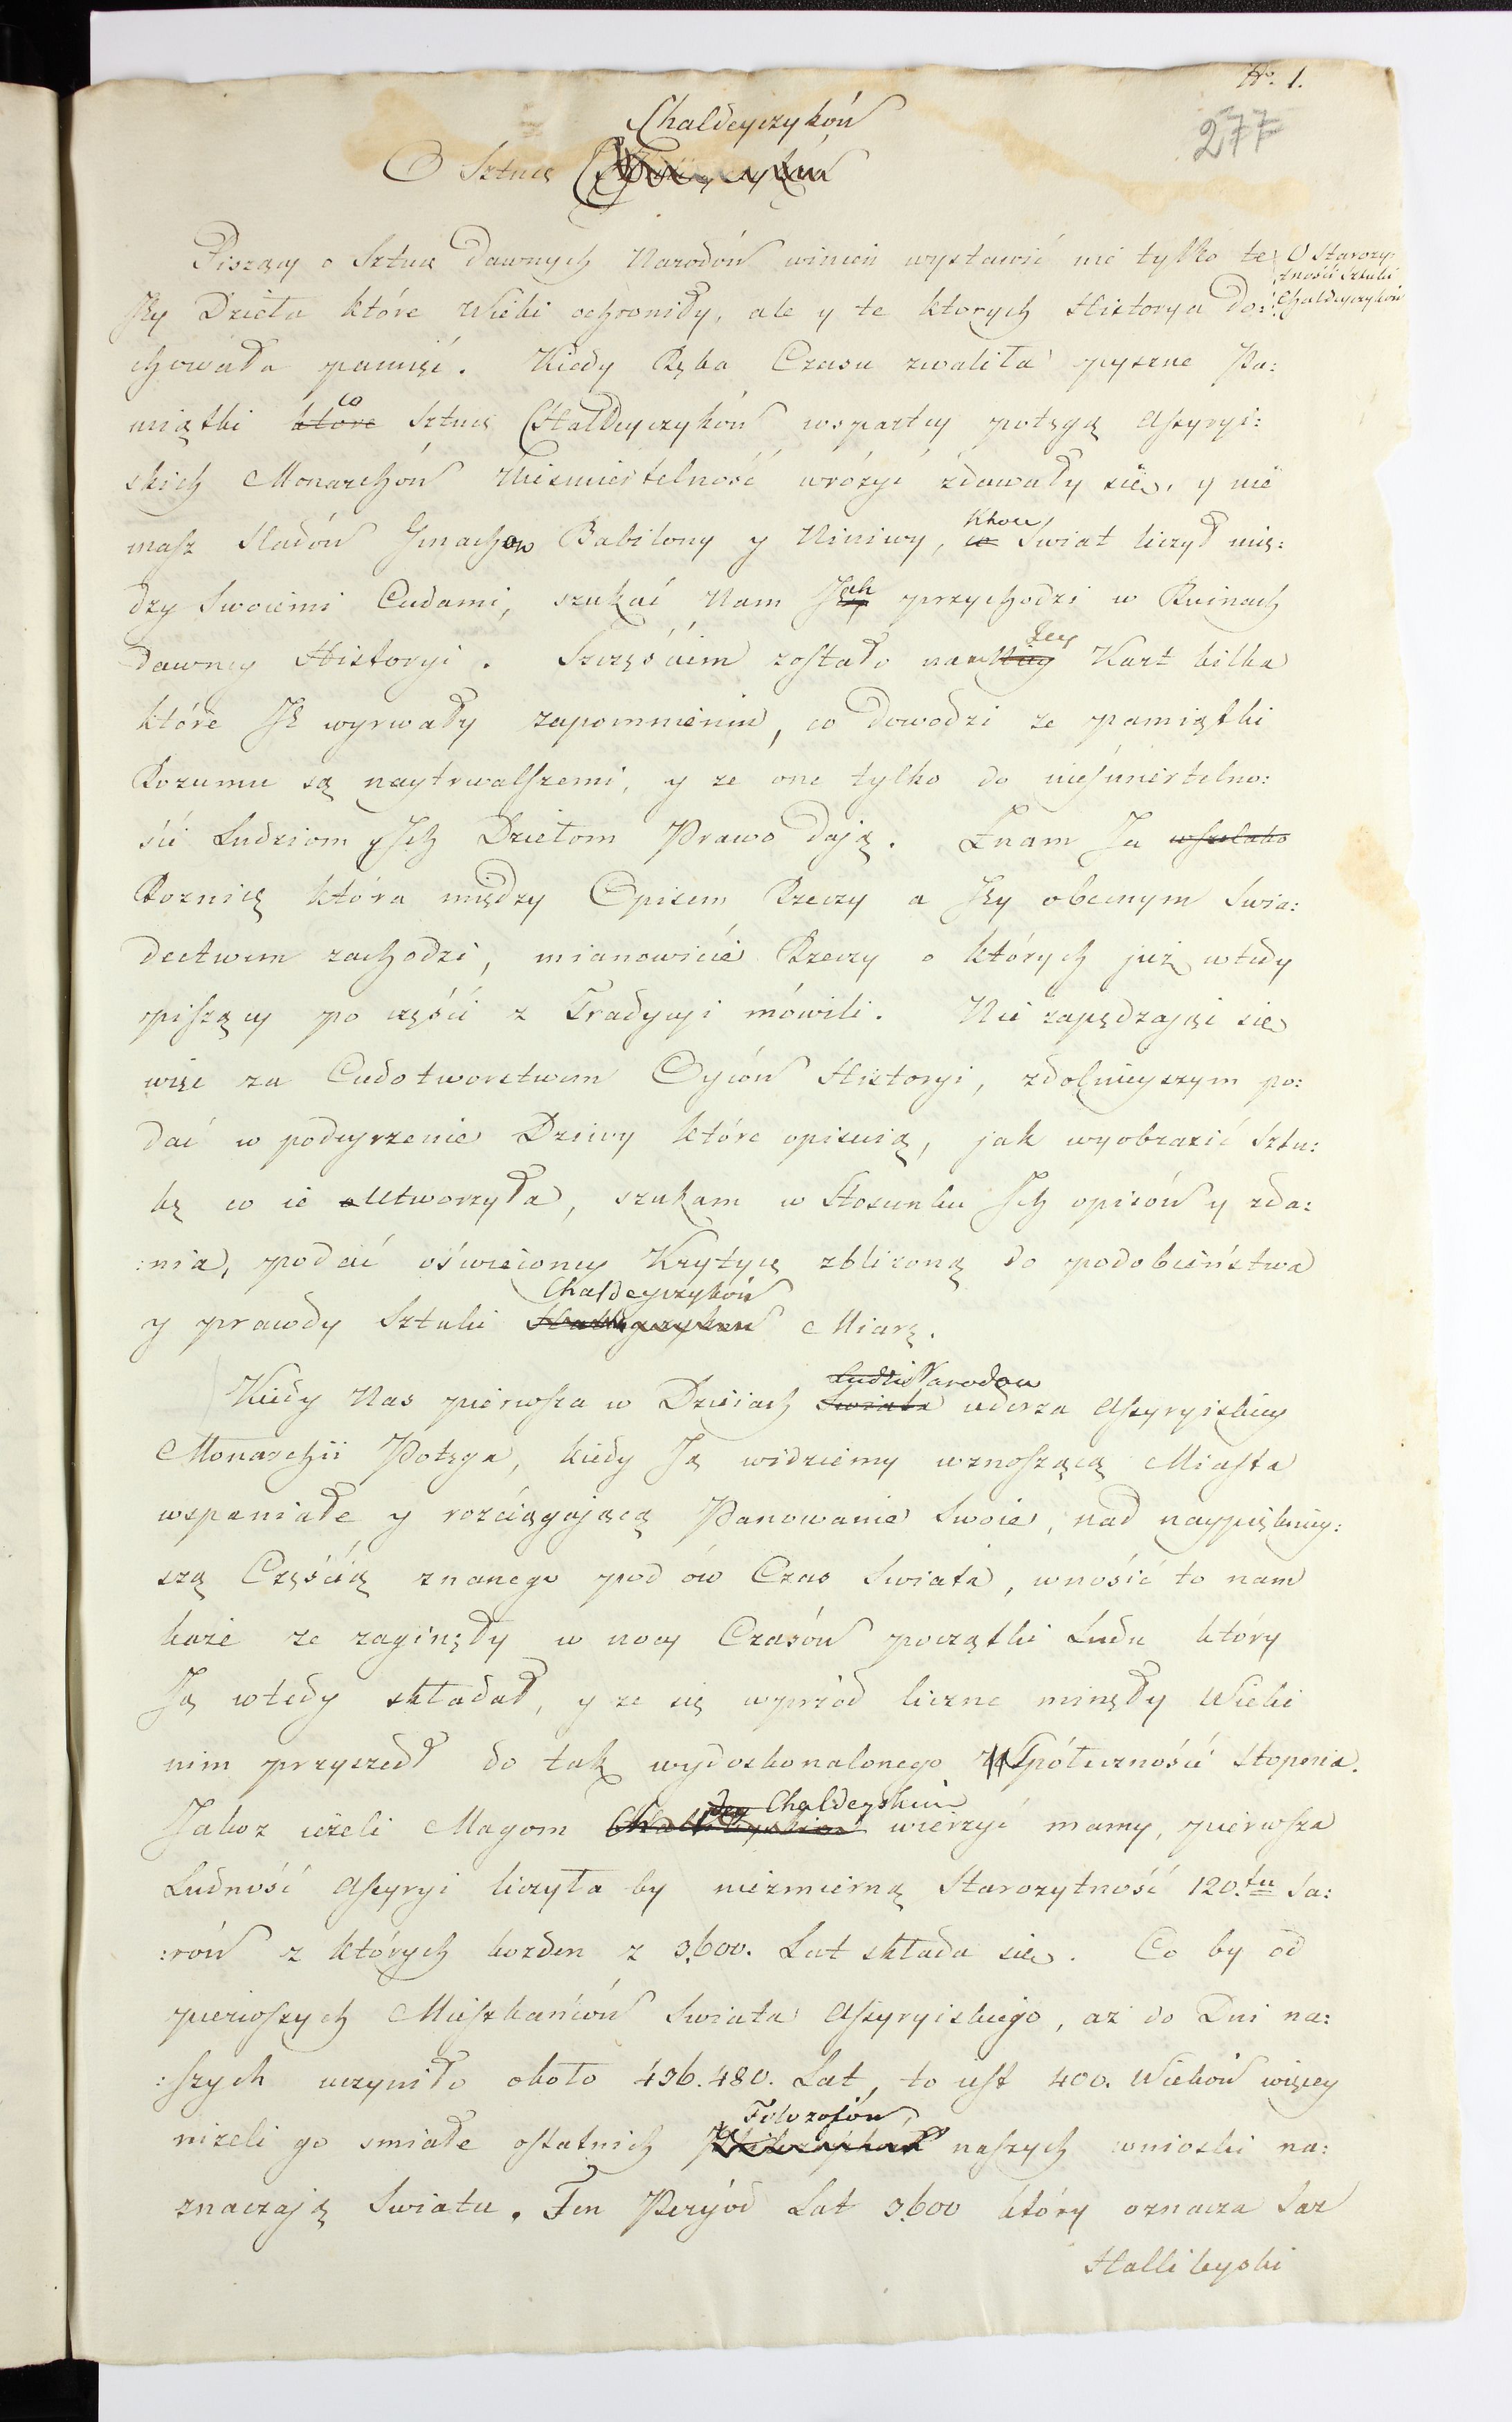 No. 1.
277
Chaldeyczyków
O Sztuce
Piszący o Sztuce dawnych Narodów winien wystawić nie tylko te
O Starozy:
tności Sztuki
Chaldeyczyków
Jey Dzieła które Wieki ochroniły, ale y te ktorych Historya do:
chowała pamięć. Kiedy Ręka Czasu zwaliła pyszne Pa:
miątki które co Sztuce Chaldeyczyków wspartey potęgą Assyryi:
skich Monarchów Nieśmiertelność wróżyć zdawały się, y nie
masz śladów Gmachow Babilony y Niniwy, co ktore Swiat liczył mię:
dzy Swoiemi Cudami, szukać Nam Ich przychodzi w Ruinach
dawney Historyi. Szczęściem zostało nam Jey Kart kilka
które Je wyrwały zapomnieniu, co dowodzi ze pamiątki
Rozumu są naytrwalszemi, y ze one tylko do nieśmiertelno:
ści Ludziom y Ich Dziełom Prawo dają. Znam Ja wszelako
Roznicę która między Opisem Rzeczy a Jey obecnym Swia:
dectwem zachodzi, mianowicie Rzeczy o których już wtedy
piszący po części z Tradycyi mówili. Nie zapędzając się
więc za Cudotworstwem Oyców Historyi, zdolnieyszym po:
dać w podeyrzenie Dziwy które opisuią, jak wyobrazić Sztu:
kę co ie Utworzyła, szukam w Stosunku Ich opisów y zda:
:nia, podać oświeconey Krytyce zbliżoną do podobieństwa
Chaldeyczyków
y prawdy Sztuki Miarę.
Ludzi Narodow
Kiedy Nas pierwsza w Dzieiach Swiata uderza Assyryiskiey
Monarchii Potęga, kiedy Ją widziemy wznoszącą Miasta
wspaniałe y rozciągającą Panowanie Swoie, nad naypiękniey:
szą Częścią znanego pod ów Czas Swiata, wnosić to nam
każe ze zaginęły w nocy Czasów początki Ludu który
Ją wtedy składał, y ze się wprzód liczne minęły Wieki
nim przyszedł do tak wydoskonalonego Społeczności Stopnia.
Chaldeyskim
Jakoz ieżeli Magom wierzyć mamy, pierwsza
Ludność Assyryi liczyła by niezmierną Starozytność 120.tu Sa:
:rów z których kożden z 3,600. Lat składa się. Co by od
pierwszych Mieszkańców Swiata Assyryiskiego, az do Dni na:
:szych uczyniło około 436.480. Lat, to iest 400. Wieków więcey
Filozofów
niżeli go smiałe ostatnich naszych wnioski na:
znaczają Swiatu. Ten Peryód Lat 3,600 który oznacza Sar